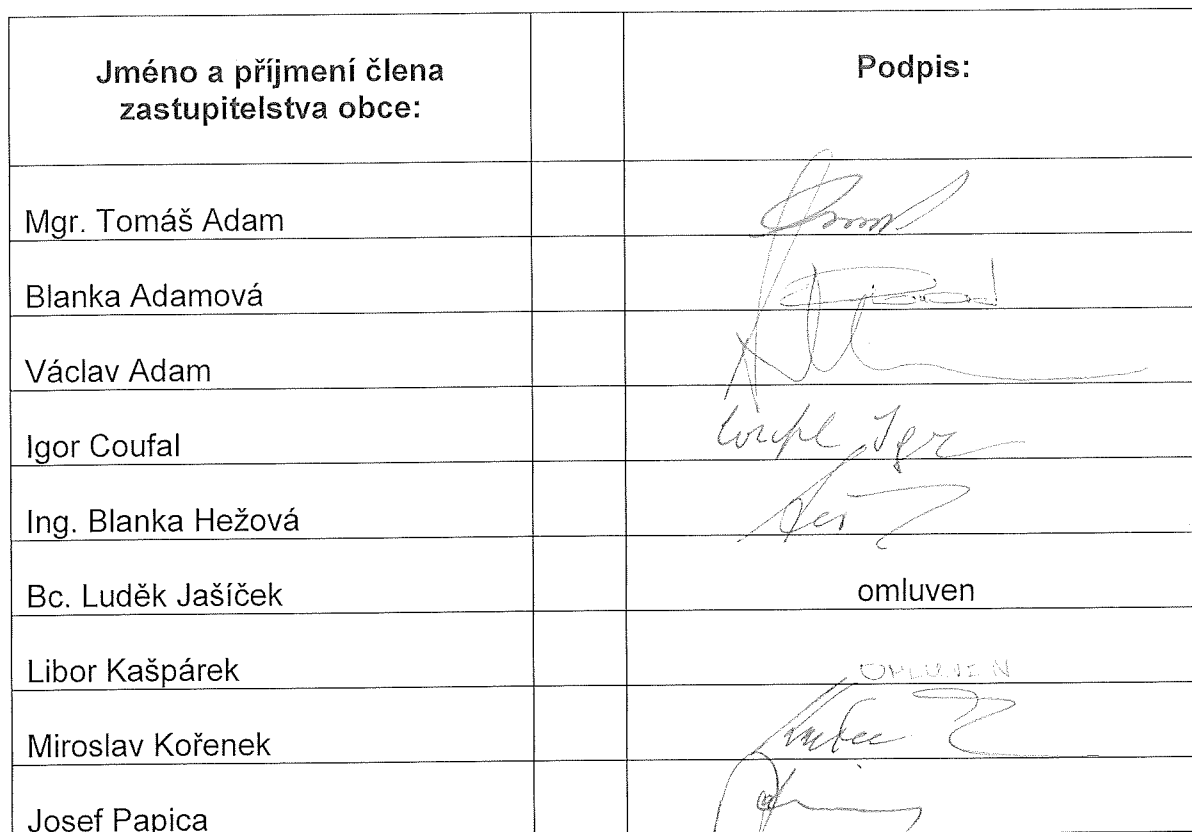 Jméno a příjmení člena
zastupitelstva obce:
Podpis:
Mgr. Tomáš Adam
Blanka Adamová
Václav Adam
Igor Coufal
Ing. Blanka Hežová
Bc. Luděk Jašíček
omluven
Libor Kašpárek
OMLUVEN
Miroslav Kořenek
Josef Papica